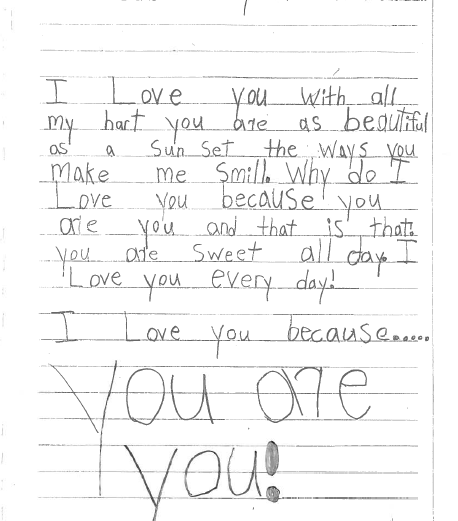 I Love you with all
my hart you are as beautiful
as a Sun Set the ways you
Make me Smill. Why do I
Love you because you
are you and that is that.
you are sweet all day. I
Love you every day!
I Love you because.....
You are
you!